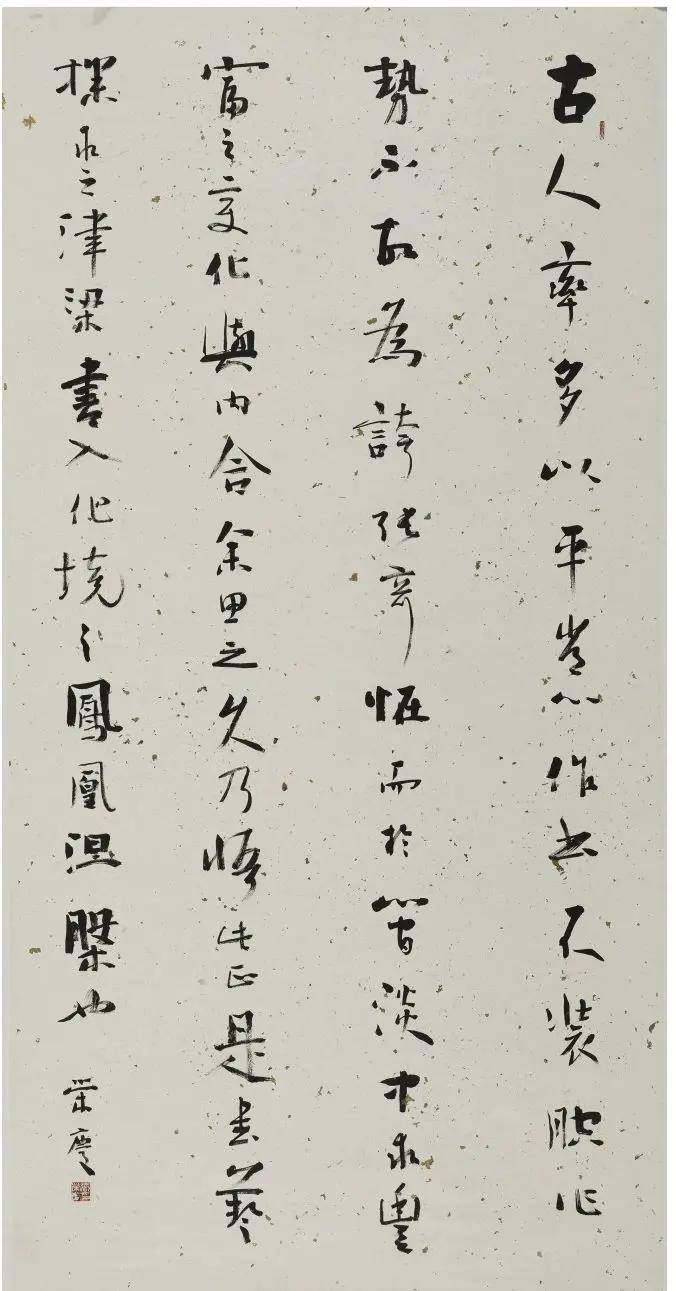 古人率多以平常心作書不裝腔作
勢不故為誇張奇怪而於簡淡中求豐
富之變化與內含余思之久乃悟此正是書藝
探求之津梁書入化境之鳳凰涅槃也
榮慶